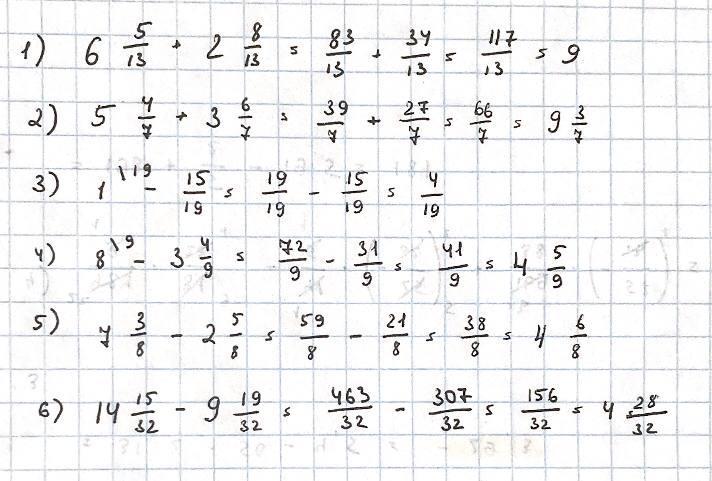 1) 6 5/13 + 2 8/13 = 83/13 + 34/13 = 117/13 = 9
2) 5 4/7 + 3 6/7 = 39/7 + 27/7 = 66/7 = 9 3/7
3) 1 \19 - 15/19 = 19/19 - 15/19 = 4/19
4) 8 \9 - 3 4/9 = 72/9 - 31/9 = 41/9 = 4 5/9
5) 7 3/8 - 2 5/8 = 59/8 - 21/8 = 38/8 = 4 6/8
6) 14 15/32 - 9 19/32 = 463/32 - 307/32 = 156/32 = 4 28/32